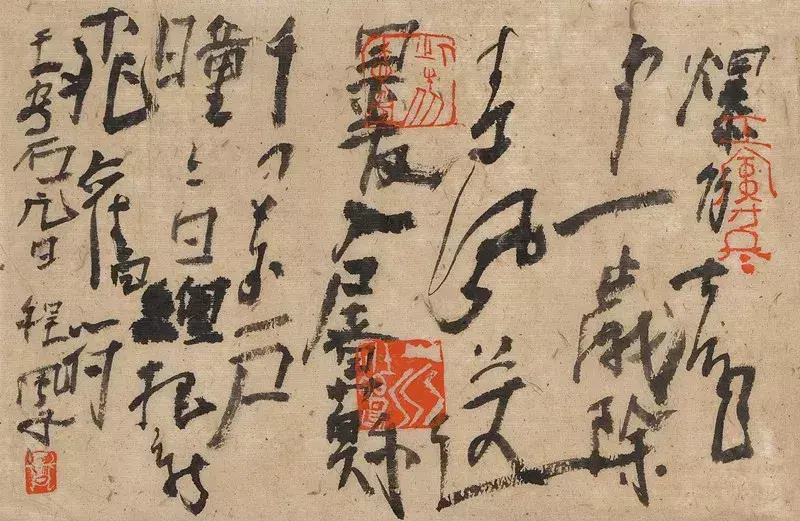 爆竹聲
中一歲除
春風送
暖入屠蘇
千門萬戶
曈々日總把新
桃舊符
王安石元日 程